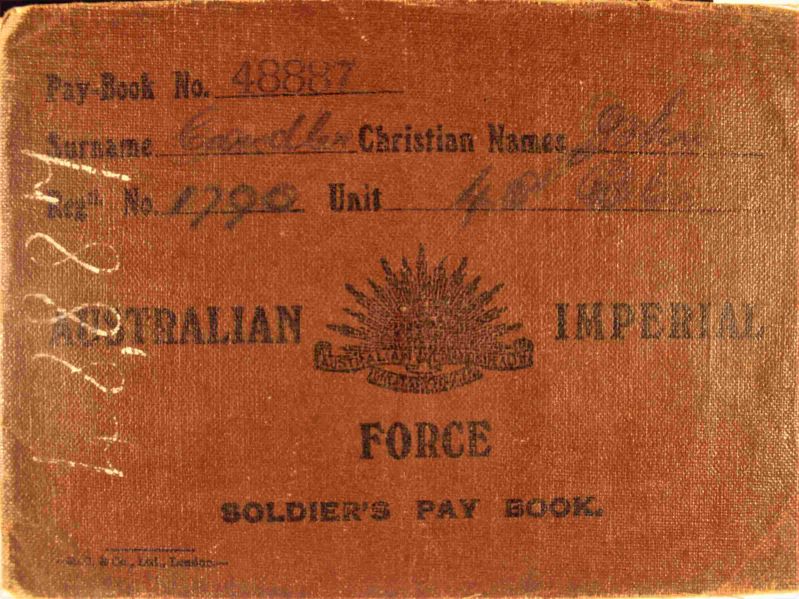 Pay-Book No. 48887
Surname Candler Christian Names John
Reg^tl No. 1790 Unit 48th Btn
AUSTRALIAN IMPERIAL
AUSTRALIAN COMMONWEALTH
MILITARY FORCES
FORCE
SOLDIER'S PAY BOOK.
& Co., Ltd., London.
48887